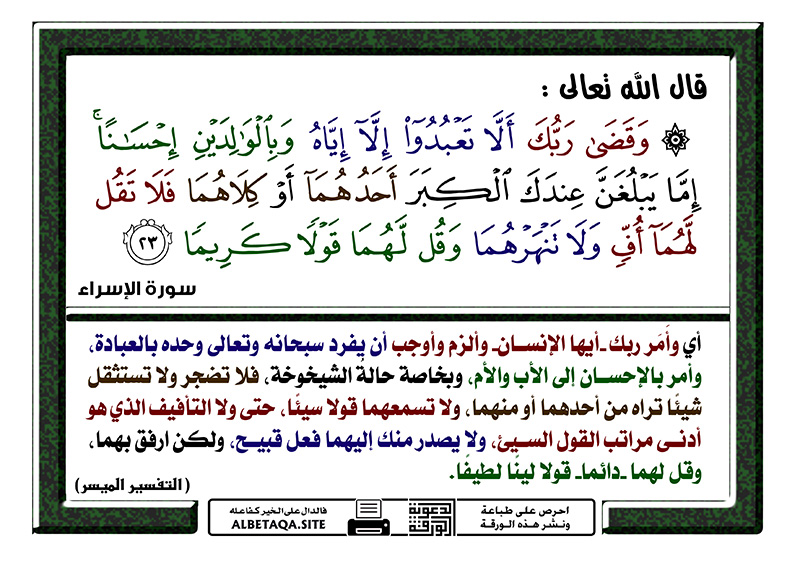 قال الله تعالى :
۞ وَقَضَىٰ رَبُّكَ أَلَّا تَعْبُدُوٓا۟ إِلَّآ إِيَّاهُ وَبِٱلْوَٰلِدَيْنِ إِحْسَـٰنًا ۚ
إِمَّا يَبْلُغَنَّ عِندَكَ ٱلْكِبَرَ أَحَدُهُمَآ أَوْ كِلَاهُمَا فَلَا تَقُل
لَّهُمَآ أُفٍّ وَلَا تَنْهَرْهُمَا وَقُل لَّهُمَا قَوْلًا كَرِيمًا ٢٣
سورة الإسراء
أي وأَمَر ربك ـ أيها الإنسان ـ وألزم وأوجب أن يفرد سبحانه وتعالى وحده بالعبادة،
وأمر بالإحسان إلى الأب والأم، وبخاصة حالةُ الشيخوخة، فلا تضجر ولا تستثقل
شيئًا تراه من أحدهما أو منهما، ولا تسمعهما قولا سيئًا، حتى ولا التأفيف الذي هو
أدنى مراتب القول السيئ، ولا يصدر منك إليهما فعل قبيح، ولكن ارفق بهما،
وقل لهما ـ دائما ـ قولا لينًا لطيفًا.
( التفسير الميسر)
احرص على طباعة
ونشر هذه الورقة
الورقة الدعوية
فالدال على الخير كفاعله
ALBETAQA.SITE